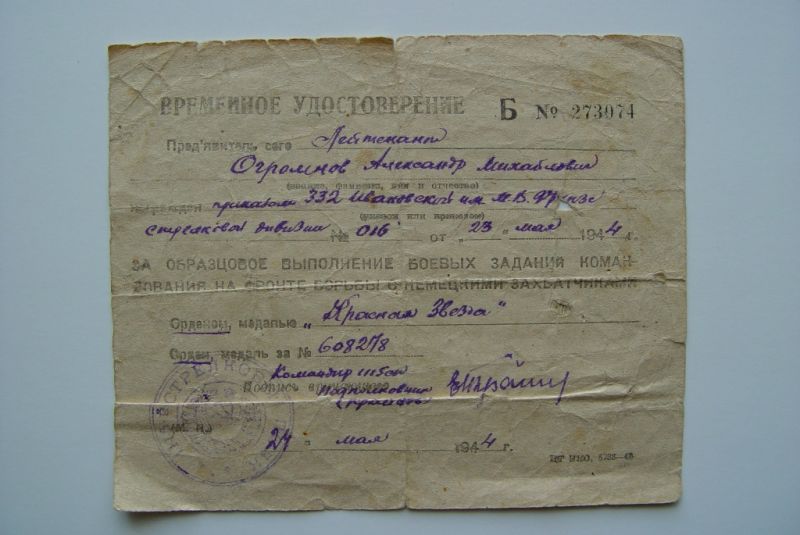 ВРЕМЕННОЕ УДОСТОВЕРЕНИЕ Б № 273074
Пред'явитель сего Лейтенант
Огромнов Александр Михайлович
(звание, фамилия, имя и отчество)
награжден приказом 332 Ивановской им. М.В. Фрунзе
(указом или приказом)
стрелковой дивизии № 016 от „ 23 „ мая 1944 г.
ЗА ОБРАЗЦОВОЕ ВЫПОЛНЕНИЕ БОЕВЫХ ЗАДАНИЙ КОМАН-
ДОВАНИЯ НА ФРОНТЕ БОРЬБЫ С НЕМЕЦКИМИ ЗАХВАТЧИКАМИ
Орденом, медалью „Красная Звезда"
Орден, медаль за № 608278
Командир
Подпись
Подполковник
24 „ мая 1944 г.